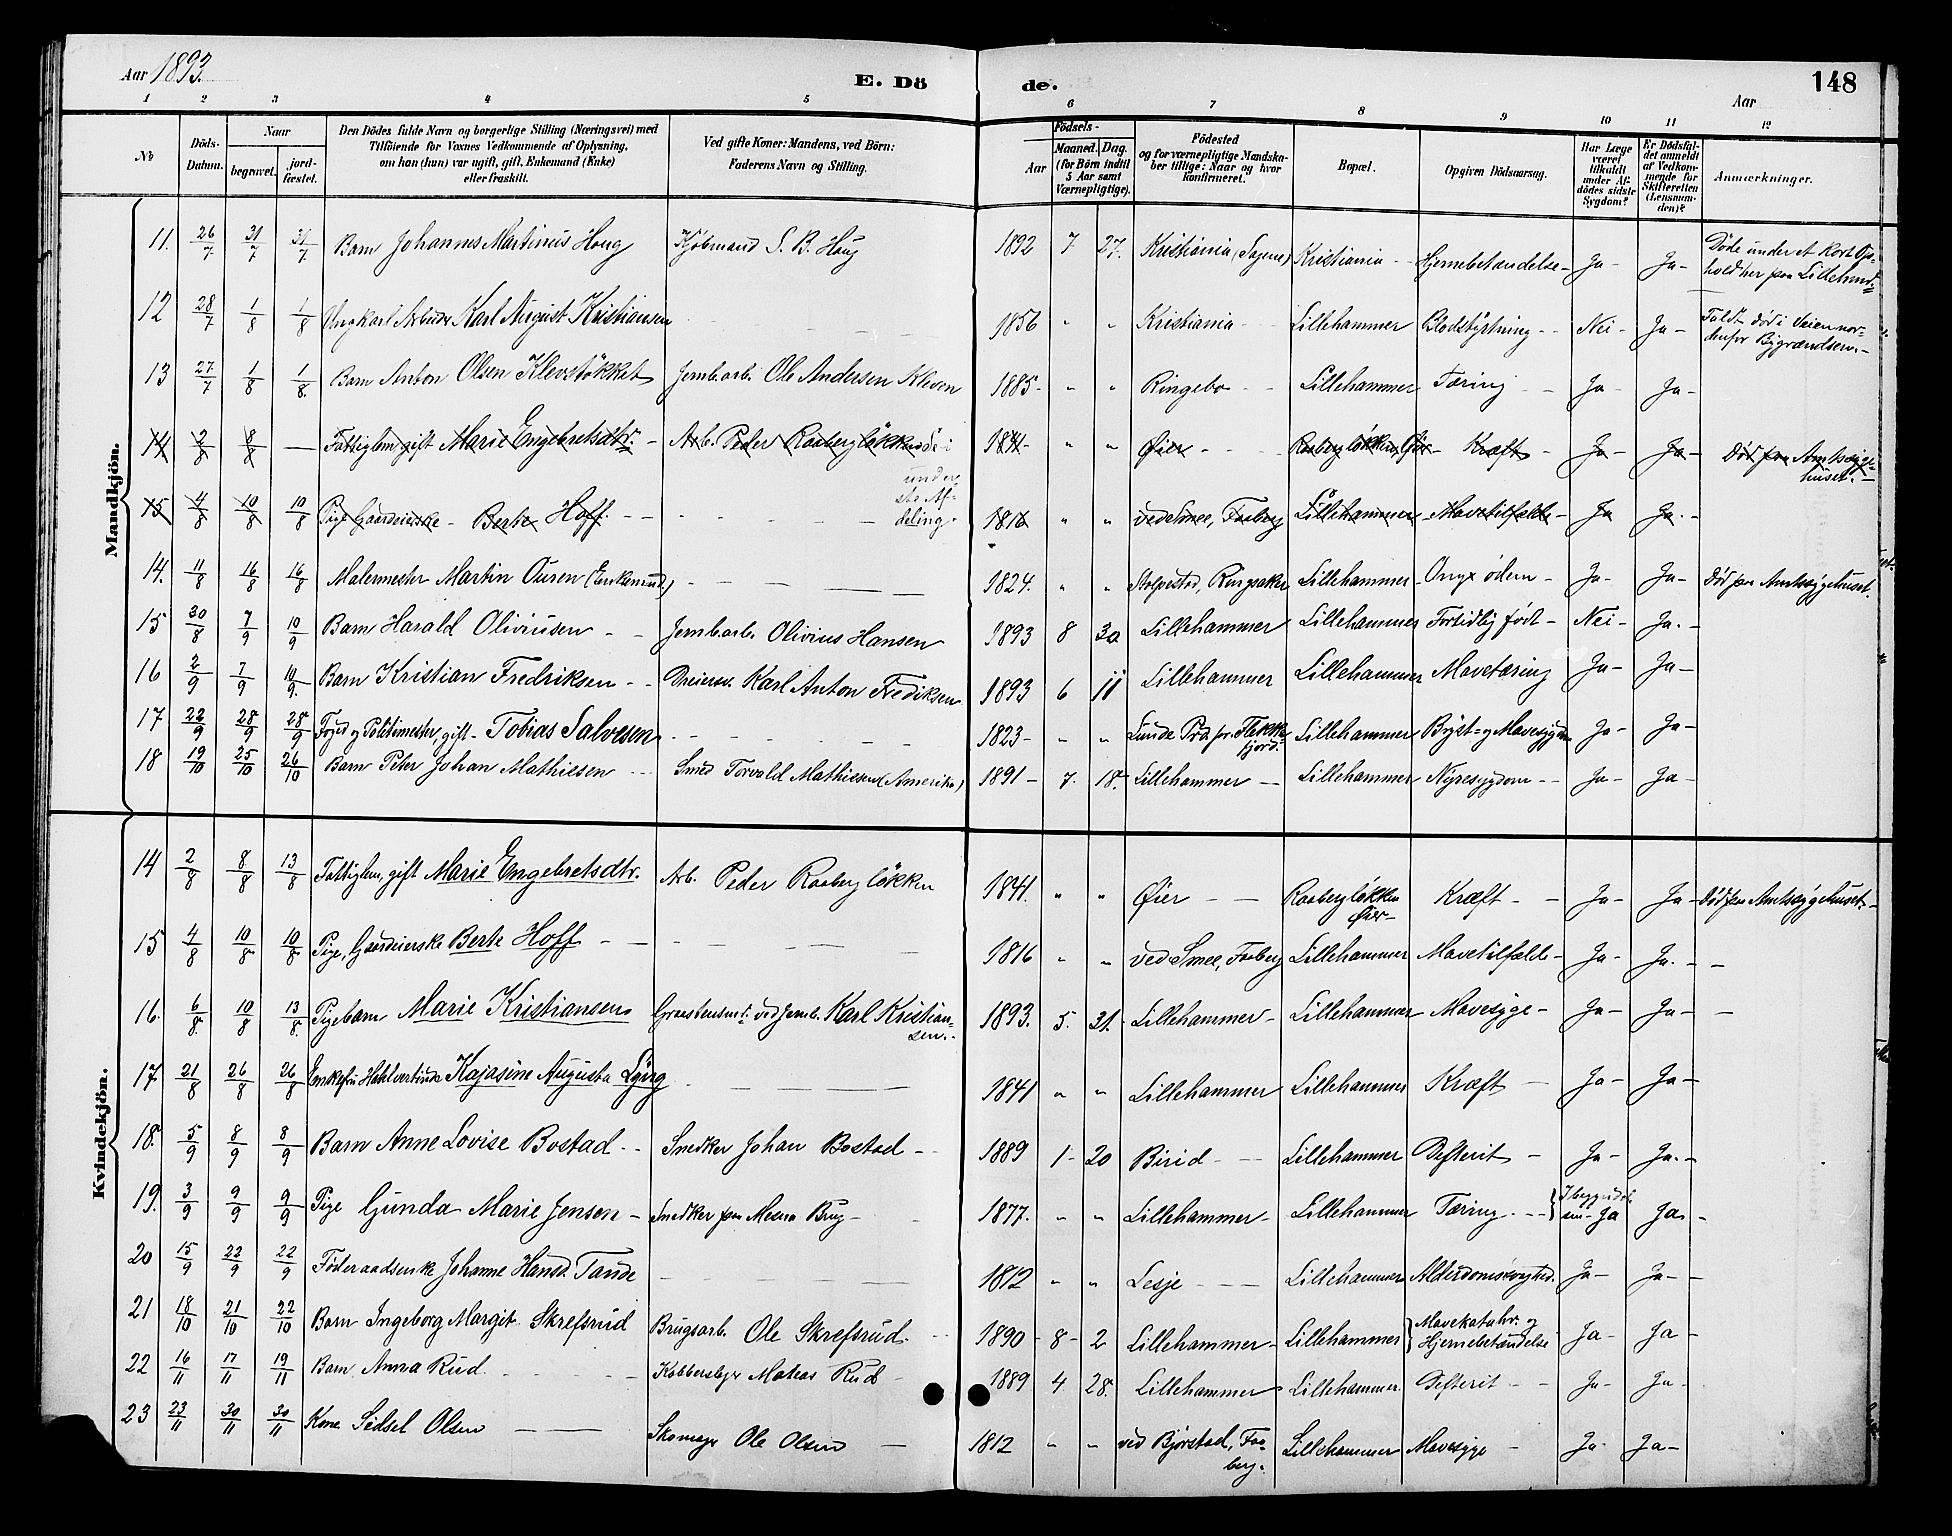 Aar 1893. E. Dö de. 148
Aar
1 2 3 4 5 6 7 8 9 10 11 12
№ Döds-Datum. Naar begravet. jordfæstet. Den Dödes fulde Navn og borgerlige Stilling (Næringsvei) med Tilföiende for Voxnes Vedkommende af Oplysning, om han (hun) var ugift, gift, Enkemand (Enke) eller fraskilt. Ved gifte Koner: Mandens, ved Börn: Faderens Navn og Stilling. Födsels- Aar Maaned. Dag. (for Börn indtil 5 Aar samt Værnepligtige). Födested og for værnepligtige Mandskaber tillige: Naar og hvor konfirmeret. Bopæl. Opgiven Dödsaarsag. Har Læge været tilkaldt under Afdödes sidste Sygdom? Er Dödsfaldet anmeldt af Vedkommende for Skifteretten (Lensmanden)? Anmærkninger.
Mandkjön.
11. 26/7 31/7 31/7 Barn Johannes Martinus Haug Kjøbmand S. B. Haug 1892 7 27. Kristiania (Sagene) Kristiania Hjernebetændelse Ja Ja Døde under et kort Ophold her paa Lillehm.
12 28/7 1/8 1/8 Ungkarl Arbeider Karl August Kristiansen 1856 " " Kristiania Lillehammer Blodstyrtning Nei Ja Faldt død i Veien nordenfor Bygrændsen.
13 27/7 1/8 1/8. Barn Anton Olsen Klevstøkket Jernb.arb. Ole Andersen Kleven 1885 " " Ringebo Lillehammer Tæring Ja Ja
14 2/8 8/8 — Fattiglem, gift Marie Engebretsdtr. Arb. Peder Raabergløkken 1841 " " Øier Raabergløkken, Øier Kræft Ja Ja Død paa Amtssygehuset.
15 4/8 10/8 10/8 Pige Gaardeierske Berte Hoff. 1816 " " ved Smee, Faaberg Lillehammer Mavetilfælde Ja Ja.
i underste Afdeling.
14. 11/8 16/8 16/8 Malermester Martin Ouren (Enkemand) 1824. " " Stolpestad, Ringsaker Lillehammer Ja Ja Død paa Amtssygehuset.
15 30/8 7/9 10/9 Barn Harald Oliviusen Jernb.arb. Olivius Hansen 1893 8 30 Lillehammer Lillehammer Fortidlig født Nei Ja.
16 2/9 7/9 10/9. Barn Kristian Fredriksen Dreiersv. Karl Anton Frediksen 1893 6 11 Lillehammer Lillehammer Mavetæring Ja Ja
17 22/9 28/9 28/9 Foged og Politimester, gift Tobias Salvesen 1823 " " Lunde Prd. pr. Flekkefjord. Lillehammer Bryst- og Mavesygdom Ja Ja
18 19/10 25/10 26/10 Barn Peter Johan Mathiesen Smed Torvald Mathiesen (Amerika) 1891 7. 18. Lillehammer Lillehammer Nyresygdom Ja Ja
Kvindekjön.
14 2/8 8/8 13/8 Fattiglem, gift Marie Engebretsdtr. Arb. Peder Raabergløkken 1841. " " Øier Raabergløkken Øier Kræft Ja Ja Død paa Amtssygehuset.
15 4/8 10/8 10/8 Pige, Gaardeierske Berte Hoff 1816 " " ved Smee, Faaberg Lillehammer Mavetilfælde Ja Ja.
16. 6/8. 10/8 13/8. Pigebarn Marie Kristiansen ved Jernb. Karl Kristiansen. 1893. 5. 31. Lillehammer Lillehammer Mavesyge Ja Ja
17 21/8 26/8 26/8 Enkefru Kajasine Augusta Lyng 1841 " " Lillehammer Lillehammer Kræft Ja Ja
18. 5/9 8/9 8/9 Barn Anne Lovise Bostad Snedker Johan Bostad 1889 1 20 Birid Lillehammer Difterit Ja Ja.
19. 3/9 9/9 9/9 Pige Gunda Marie Jensen Snedker paa Mesna Brug 1877. " " Lillehammer Lillehammer Tæring Ja Ja
20 15/9 22/9 22/9 Føderaadsenke Johanne Hansd. Tande 1812 " " Lesje Lillehammer Alderdomssvaghed. Ja Ja
21 18/10 21/10 22/10 Barn Ingeborg Margit Skrefsrud Brugsarb. Ole Skrefsrud. 1890 8 2 Lillehammer Lillehammer Mavekatahr. og Hjernebetændelse Ja Ja
22 16/11 17/11 19/11 Barn Anna Rud. Kobberslager Mateas Rud 1889 4 28. Lillehammer Lillehammer. Difterit Ja Ja
23 23/11 30/11 30/11 Kone Sidsel Olsen Skomager Ole Olsen 1812 " " ved Bjørstad, Faaberg. Lillehammer Mavesyge Ja Ja